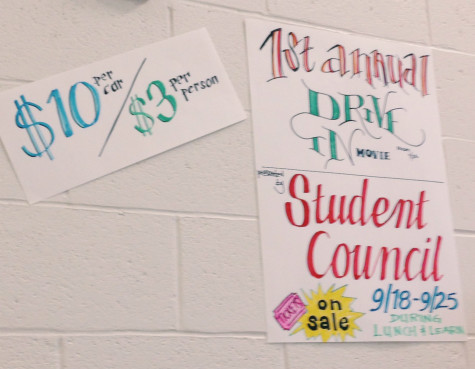 $10 per car / $3 per person
1st annual
DRIVE
IN MOVIE
presented by
Student
Council
TICKETS on sale
9/18-9/25
DURING
LUNCH & LEARN